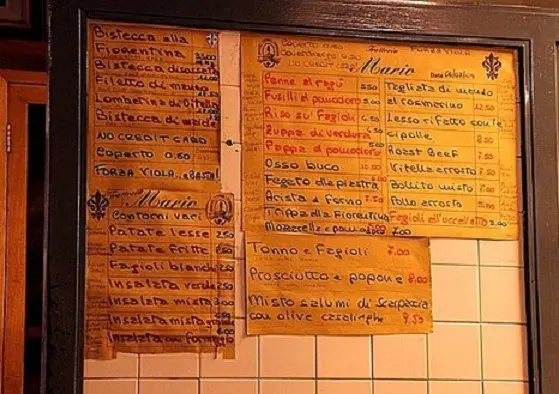 Bistecca alla
Fiorentina 35.00
Bistecca disossata
Filetto di manzo
Lombatina di Vitella
Bistecca di maiale
NO CREDIT CARD
Coperto 0.50
FORZA VIOLA
Mario
Contorni vari
Patate lesse 2.50
Patate fritte
Fagioli bianchi 2.50
Insalata verde 2.50
Insalata mista 3.00
Insalata mista grande
Insalata con formaggio
Coperto 0.50
NO CREDIT CARD
Trattoria FORZA VIOLA
Mario Data
Penne al ragù 5.50
Fusilli al pomodoro 5.00
Riso su' Fagioli 4.50
Zuppa di verdura 4.50
Pappa al pomodoro
Osso buco 10.00
Fegato alla piastra
Arista a Forno 7.50
Trippa alla Fiorentina
Mozzarella e pomodoro 7.00
Tagliata di manzo
al rosmarino 12.50
Lesso rifatto con le
cipolle 8.50
Roast Beef 7.50
Vitella arrosto 7.50
Bollito misto 7.00
Pollo arrosto 5.00
Fagioli all'uccelletto 3.00
Tonno e Fagioli 7.00
Prosciutto e popone 8.00
Misto salumi di Scarpaccia
con olive casalinghe 8.50